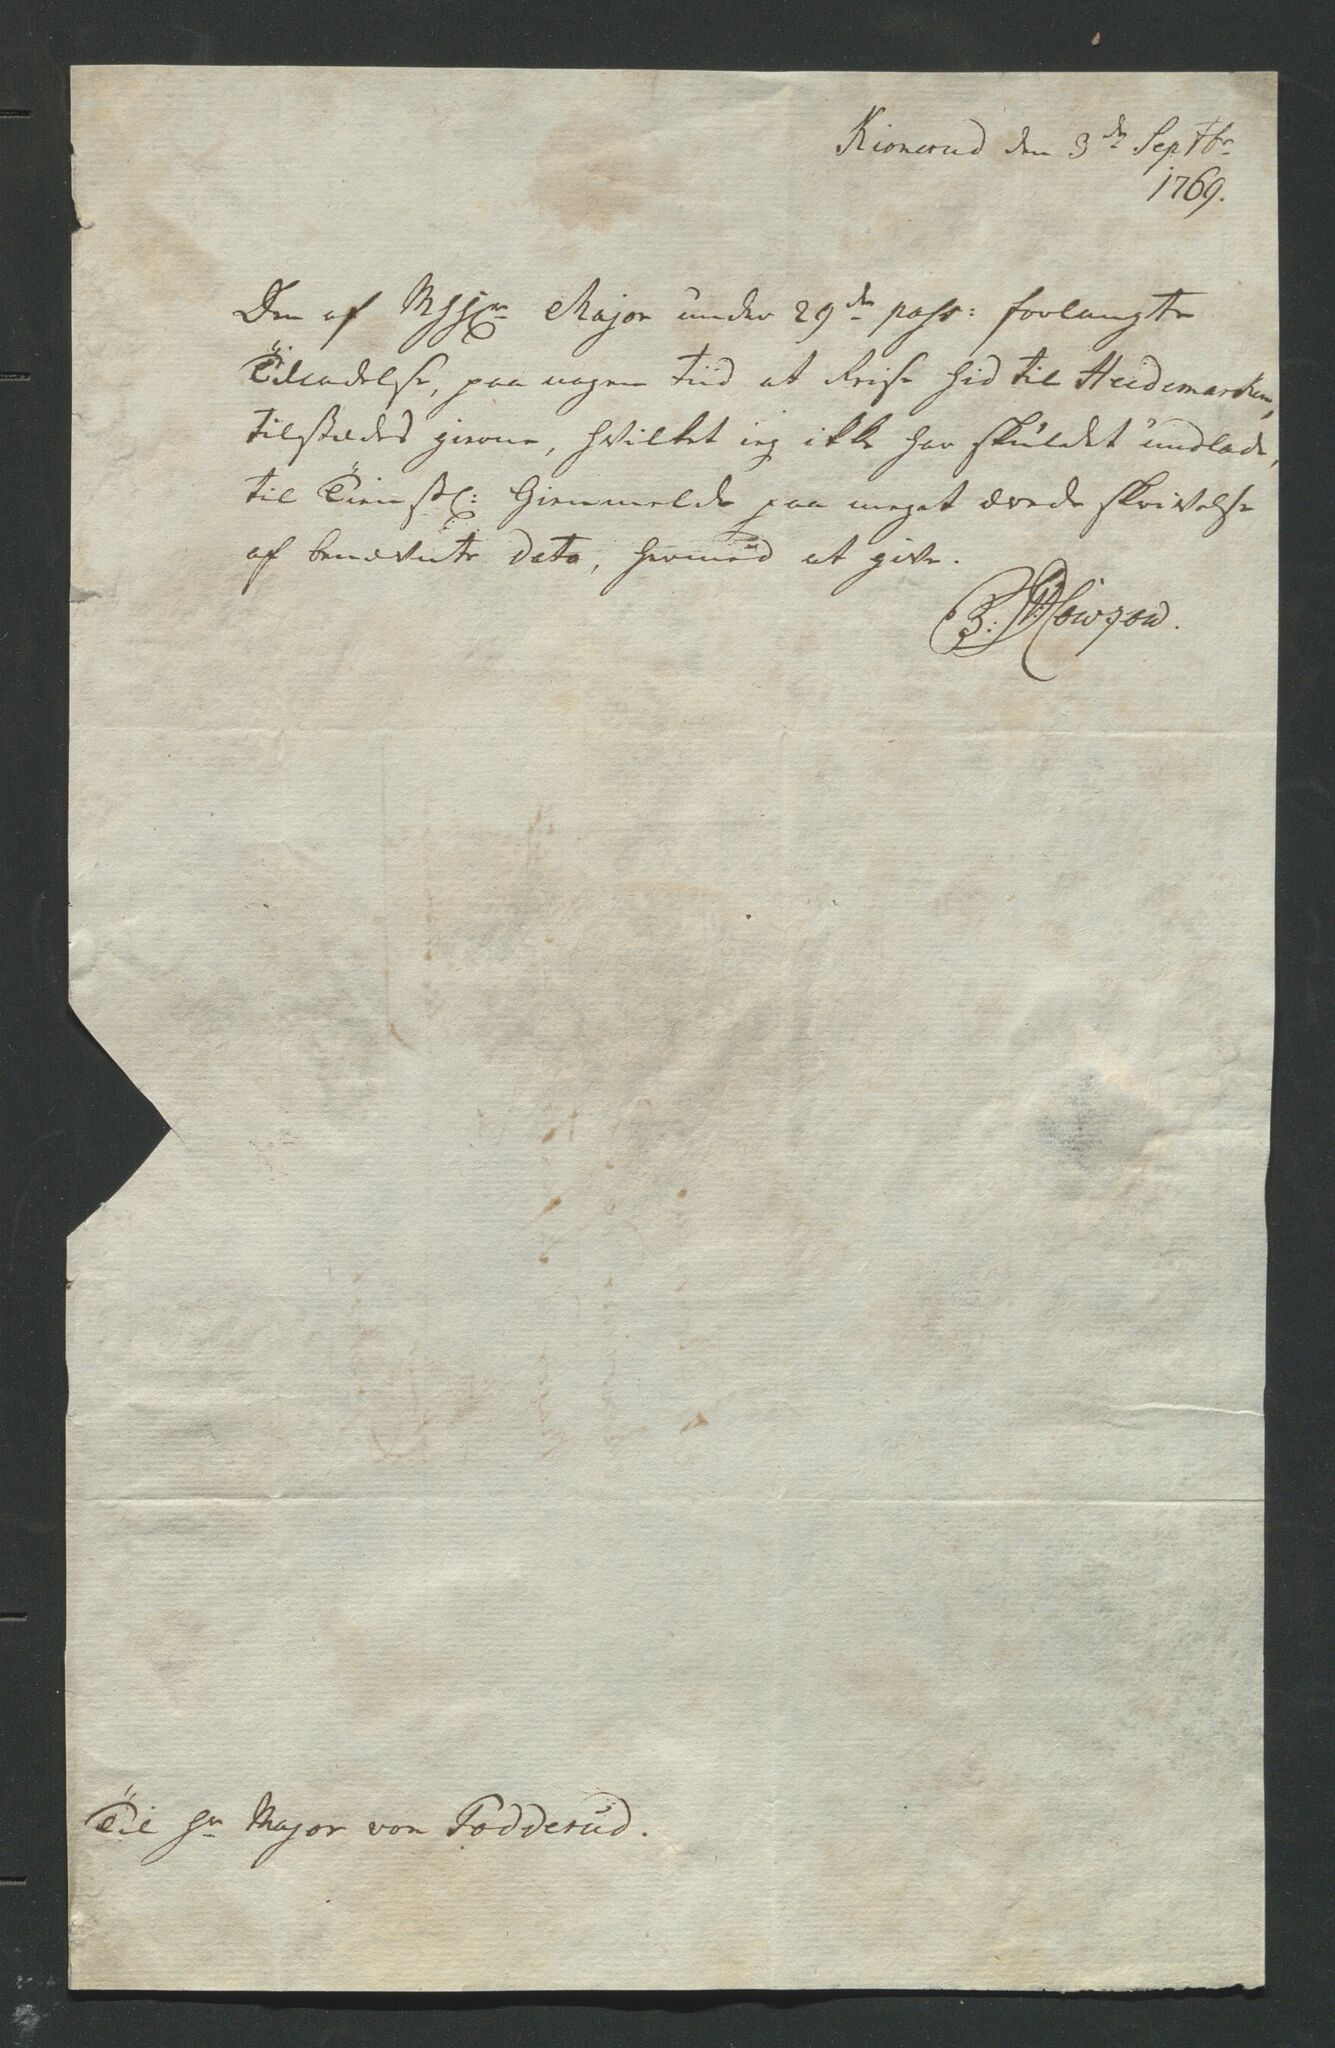 Kionerud den 3de Septbr
1769.
Den af Hr Major under 29de pass: forlangte
Tilladelse, paa nogen tiid at Reise hid til Hedemarken,
tilstædes gierne, hvilket ieg ikke har skuldet undlade,
til Tienstl: Gienmelde paa meget ærede skrivelse
af benævnte Dato, hermed at give.
B:
Til Hr Major von Todderud.